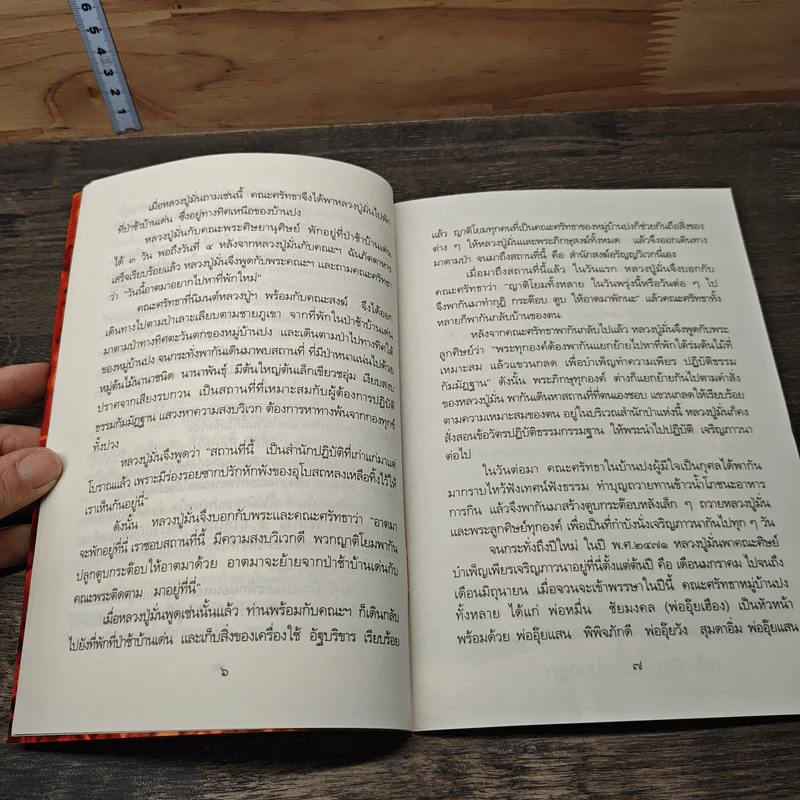 6
5
4
3
2
1
เมื่อหลวงปู่มั่นถามเช่นนี้ คณะศรัทธาจึงได้พาหลวงปู่มั่นไปพัก
ที่ป่าช้าบ้านเด่น ซึ่งอยู่ทางทิศเหนือของบ้านปง
หลวงปู่มั่นกับคณะพระศิษยานุศิษย์ พักอยู่ที่ป่าช้าบ้านเด่น
ได้ ๓ วัน พอถึงวันที่ ๔ หลังจากหลวงปู่มั่นกับคณะฯ ฉันภัตตาหาร
เสร็จเรียบร้อยแล้ว หลวงปู่มั่นจึงพูดกับพระและถามคณะศรัทธา
ว่า “วันนี้อาตมาอยากไปหาที่พักใหม่”
คณะศรัทธาที่นิมนต์หลวงปู่ฯ พร้อมกับคณะสงฆ์ จึงได้ออก
เดินทางไปตามป่าเลาะเลียบตามชายภูเขา จากที่พักในป่าช้าบ้านเด่น
มาตามป่าทางทิศตะวันตกของหมู่บ้านปง และเดินตามป่าไปทางทิศใต้
ของหมู่บ้านปง จนกระทั่งพากันเดินมาพบสถานที่ ที่มีป่าหนาแน่นไปด้วย
หมู่ต้นไม้นานาชนิด นานาพันธุ์ มีต้นใหญ่ต้นเล็กเขียวชอุ่ม เงียบสงบ
ปราศจากเสียงรบกวน เป็นสถานที่ที่เหมาะสมกับผู้ต้องการปฏิบัติ
ธรรมกัมมัฏฐาน แสวงหาความสงบวิเวก ต้องการหาทางพ้นจากกองทุกข์
ทั้งปวง
หลวงปู่มั่นจึงพูดว่า “สถานที่นี้ เป็นสำนักปฏิบัติที่เก่าแก่มาแต่
โบราณแล้ว เพราะมีร่องรอยซากปรักหักพังของอุโบสถหลงเหลือทิ้งไว้ให้
เราเห็นกันอยู่นี่”
ดังนั้น หลวงปู่มั่นจึงบอกกับพระและคณะศรัทธาว่า “อาตมา
จะพักอยู่ที่นี่ เราชอบสถานที่นี้ มีความสงบวิเวกดี พวกญาติโยมพากัน
ปลูกตูบกระต๊อบให้อาตมาด้วย อาตมาจะย้ายจากป่าช้าบ้านเด่นกับ
คณะพระติดตาม มาอยู่ที่นี่”
เมื่อหลวงปู่มั่นพูดเช่นนั้นแล้ว ท่านพร้อมกับคณะฯ ก็เดินกลับ
ไปยังที่พักที่ป่าช้าบ้านเด่น และเก็บสิ่งของเครื่องใช้ อัฐบริขาร เรียบร้อย
๖
แล้ว ญาติโยมทุกคนที่เป็นคณะศรัทธาของหมู่บ้านปงก็ช่วยกันถือสิ่งของ
ต่าง ๆ ให้หลวงปู่มั่นและพระภิกษุสงฆ์ทั้งหมด แล้วจึงออกเดินทาง
มาตามป่า จนมาถึงสถานที่นี้ คือ สำนักสงฆ์อรัญญวิเวกนี่เอง
เมื่อมาถึงสถานที่นี้แล้ว ในวันแรก หลวงปู่มั่นจึงบอกกับ
คณะศรัทธาว่า “ญาติโยมทั้งหลาย ในวันพรุ่งนี้หรือวันต่อ ๆ ไป
จึงพากันมาทำกุฏิ กระต๊อบ ตูบ ให้อาตมาพักนะ” แล้วคณะศรัทธาทั้ง
หลายก็พากันกลับบ้านของตน
หลังจากคณะศรัทธาพากันกลับไปแล้ว หลวงปู่มั่นจึงพูดกับพระ
ลูกศิษย์ว่า “พระทุกองค์ต้องพากันแยกย้ายไปหาที่พักใต้ร่มต้นไม้ที่
เหมาะสม แล้วแขวนกลด เพื่อบำเพ็ญทำความเพียร ปฏิบัติธรรม
กัมมัฏฐาน” ดังนั้น พระภิกษุทุกองค์ ต่างก็แยกย้ายกันไปตามคำสั่ง
ของหลวงปู่มั่น พากันเดินหาสถานที่ที่ตนเองชอบ แขวนกลดให้เรียบร้อย
ตามความเหมาะสมของตน อยู่ในบริเวณสำนักป่าแห่งนี้ หลวงปู่มั่นก็คง
สั่งสอนข้อวัตรปฏิบัติธรรมกรรมฐาน ให้พระนำไปปฏิบัติ เจริญภาวนา
ต่อไป
ในวันต่อมา คณะศรัทธาในบ้านปงผู้มีใจเป็นกุศลได้พากัน
มากราบไหว้ฟังเทศน์ฟังธรรม ทำบุญถวายทานข้าวน้ำโภชนะอาหาร
การกิน แล้วจึงพากันมาสร้างตูบกระต๊อบหลังเล็ก ๆ ถวายหลวงปู่มั่น
และพระลูกศิษย์ทุกองค์ เพื่อเป็นที่กำบังนั่งเจริญภาวนากันไปทุก ๆ วัน
จนกระทั่งถึงปีใหม่ ในปี พ.ศ.๒๔๗๑ หลวงปู่มั่นพาคณะศิษย์
บำเพ็ญเพียรเจริญภาวนาอยู่ที่นี่ตั้งแต่ต้นปี คือ เดือนมกราคม ไปจนถึง
เดือนมิถุนายน เมื่อจวนจะเข้าพรรษาในปีนี้ คณะศรัทธาหมู่บ้านปง
ทั้งหลาย ได้แก่ พ่อหมื่น ชัยมงคล (พ่ออุ๊ยเฮือง) เป็นหัวหน้า
พร้อมด้วย พ่ออุ๊ยแสน พิพิจภักดี พ่ออุ๊ยวัง สุมดาอิ่ม พ่ออุ๊ยแสน
๗